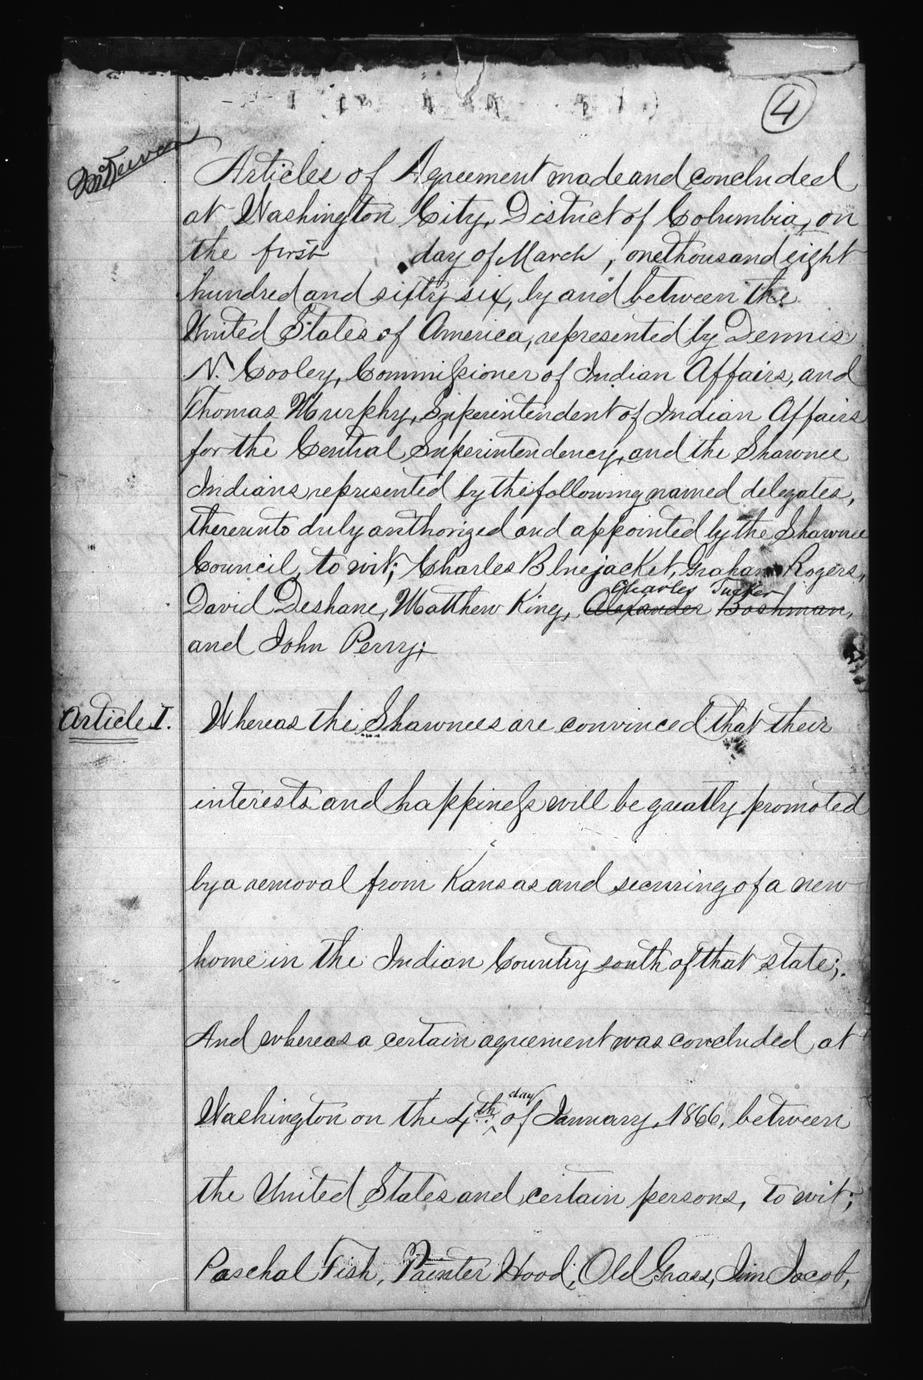 4
Articles of Agreement made and concluded
at Washington City, District of Columbia, on
the first day of March, one thousand eight
hundred and sixty six, by and between the
United States of America, represented by Dennis
N. Cooley, Commissioner of Indian Affairs, and
Thomas Murphy, Superintendent of Indian Affairs
for the Central Superintendency, and the Shawnee
Indians, represented by the following named delegates,
thereunto duly authorized and appointed by the Shawnee
Council, to wit; Charles Bluejacket, Graham Rogers,
Charles Tucker
David Deshane, Matthew King, Alexander Bushman,
and John Perry;
Article I. Whereas the Shawnees are convinced that their
interests and happiness will be greatly promoted
by a removal from Kansas and securing of a new
home in the Indian Country south of that state;
And whereas a certain agreement was concluded at
day
Washington on the 4th of January, 1866, between
the United States and certain persons, to wit;
Paschal Fish, Painter Wood, Old Grass, Jim Jacob,